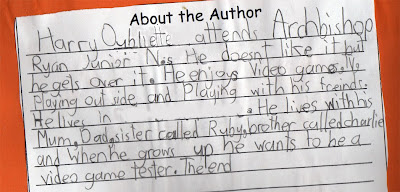 About the Author
Harry Oubliette attends Archbishop
Ryan Junior N.s He doesn't like it but
he gets over it. He enjoys Video games.
Playing out side and Playing with his freinds.
He lives in . He lives with his
Mum, Dad, sister called Ruby, brother called charlie
and when he grows up he wants to be a
video game tester. The end